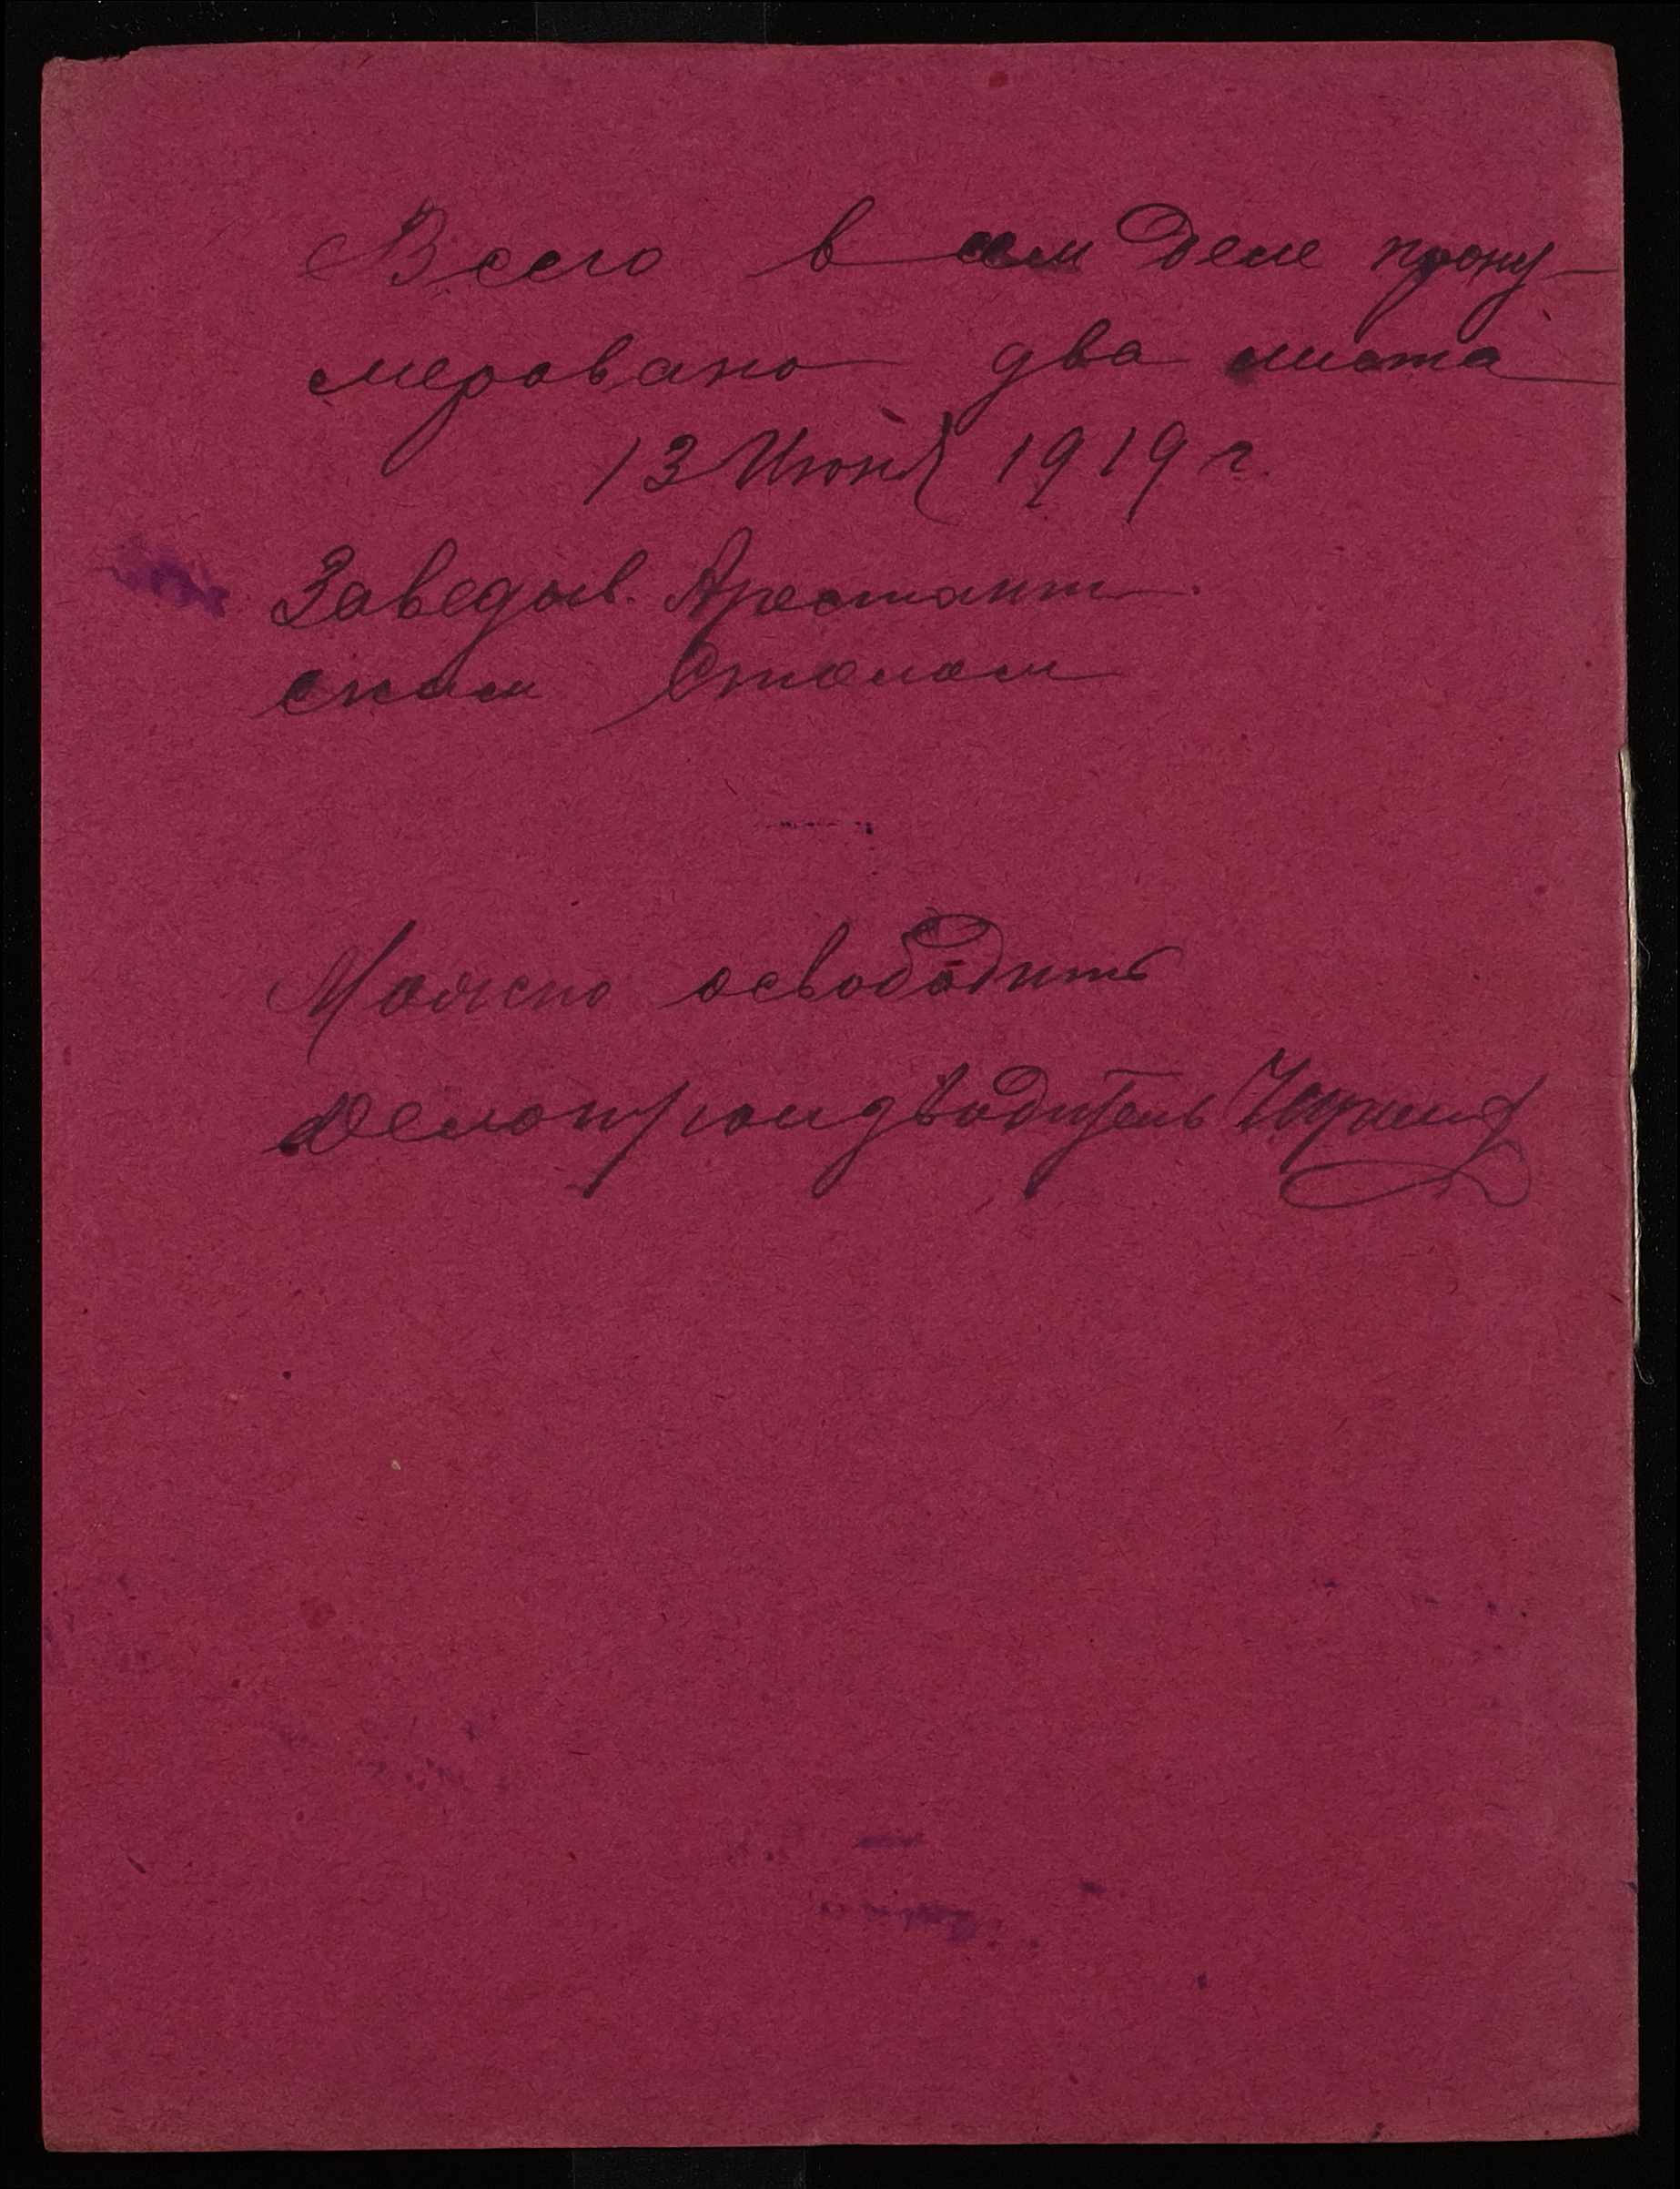 Всего в сем деле прону-
меровано два листа
13 Июня 1919 г.
Заведыв. Арестант-
ским Столом
Можно освободить
Делопроизводитель